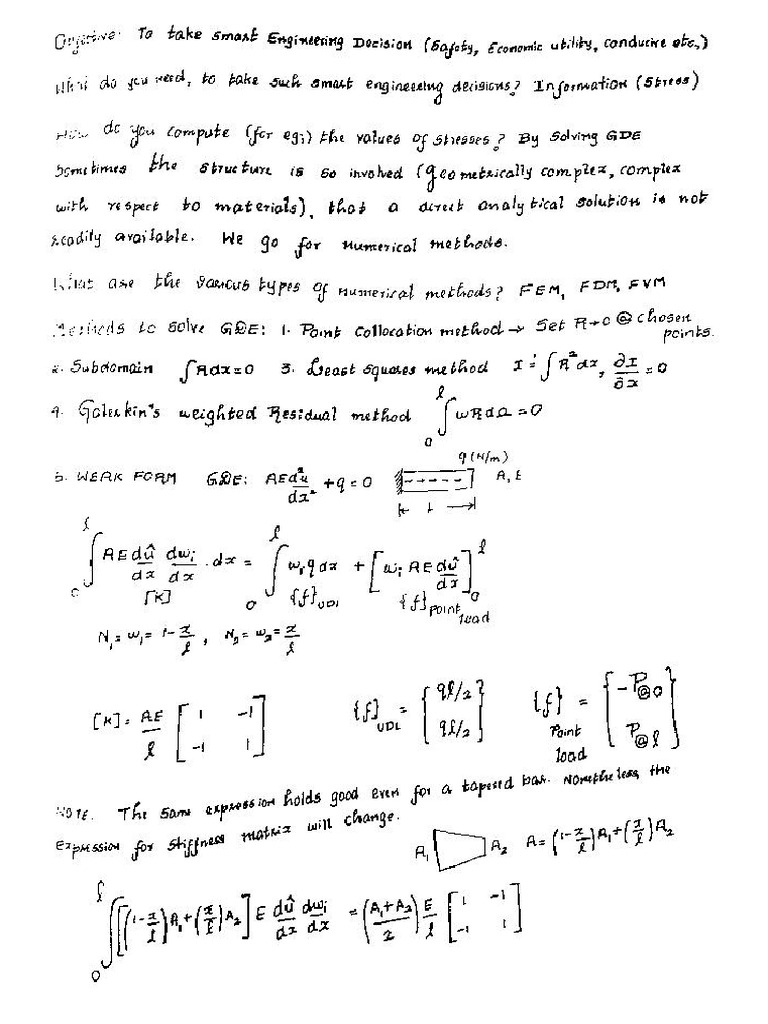 Objective: To take smart Engineering Decision (Safety, Economic utility, conducive etc.,)
What do you need, to take such smart engineering decisions? Information (Stress)
How do you compute (for eg;) the values of stresses? By solving GDE
Sometimes the structure is so involved (geometrically complex, complex
with respect to materials), that a direct analytical solution is not
readily available. We go for numerical methods.
What are the various types of numerical methods? FEM, FDM, FVM
Methods to solve GDE: 1. Point Collocation method → Set R→0 @ chosen points.
2. Subdomain ∫Rdx=0 3. Least Squares method I = ∫R²dx, ∂I/∂x = 0
4. Galerkin's weighted Residual method ∫₀^l wRdΩ=0
5. WEAK FORM GDE: AE d²u/dx² + q = 0 q(N/m) A, E
L
∫₀^l AE dû/dx dwᵢ/dx . dx = ∫₀^l wᵢ q dx + [wᵢ AE dû/dx]₀^l
[K] {f}UDL {f}point load
N₁ = w₁ = 1-x/l , N₂ = w₂ = x/l
[K] = AE/l [1 -1; -1 1] {f}UDL = {ql/2; ql/2} {f}Point load = {-P@0; P@l}
NOTE. The same expression holds good even for a tapered bar. Nonetheless, the
Expression for stiffness matrix will change.
A₁ A₂ A = (1-x/l)A₁+(x/l)A₂
∫₀^l [(1-x/l)A₁+(x/l)A₂] E dû/dx dwᵢ/dx = (A₁+A₂/2) E/l [1 -1; -1 1]